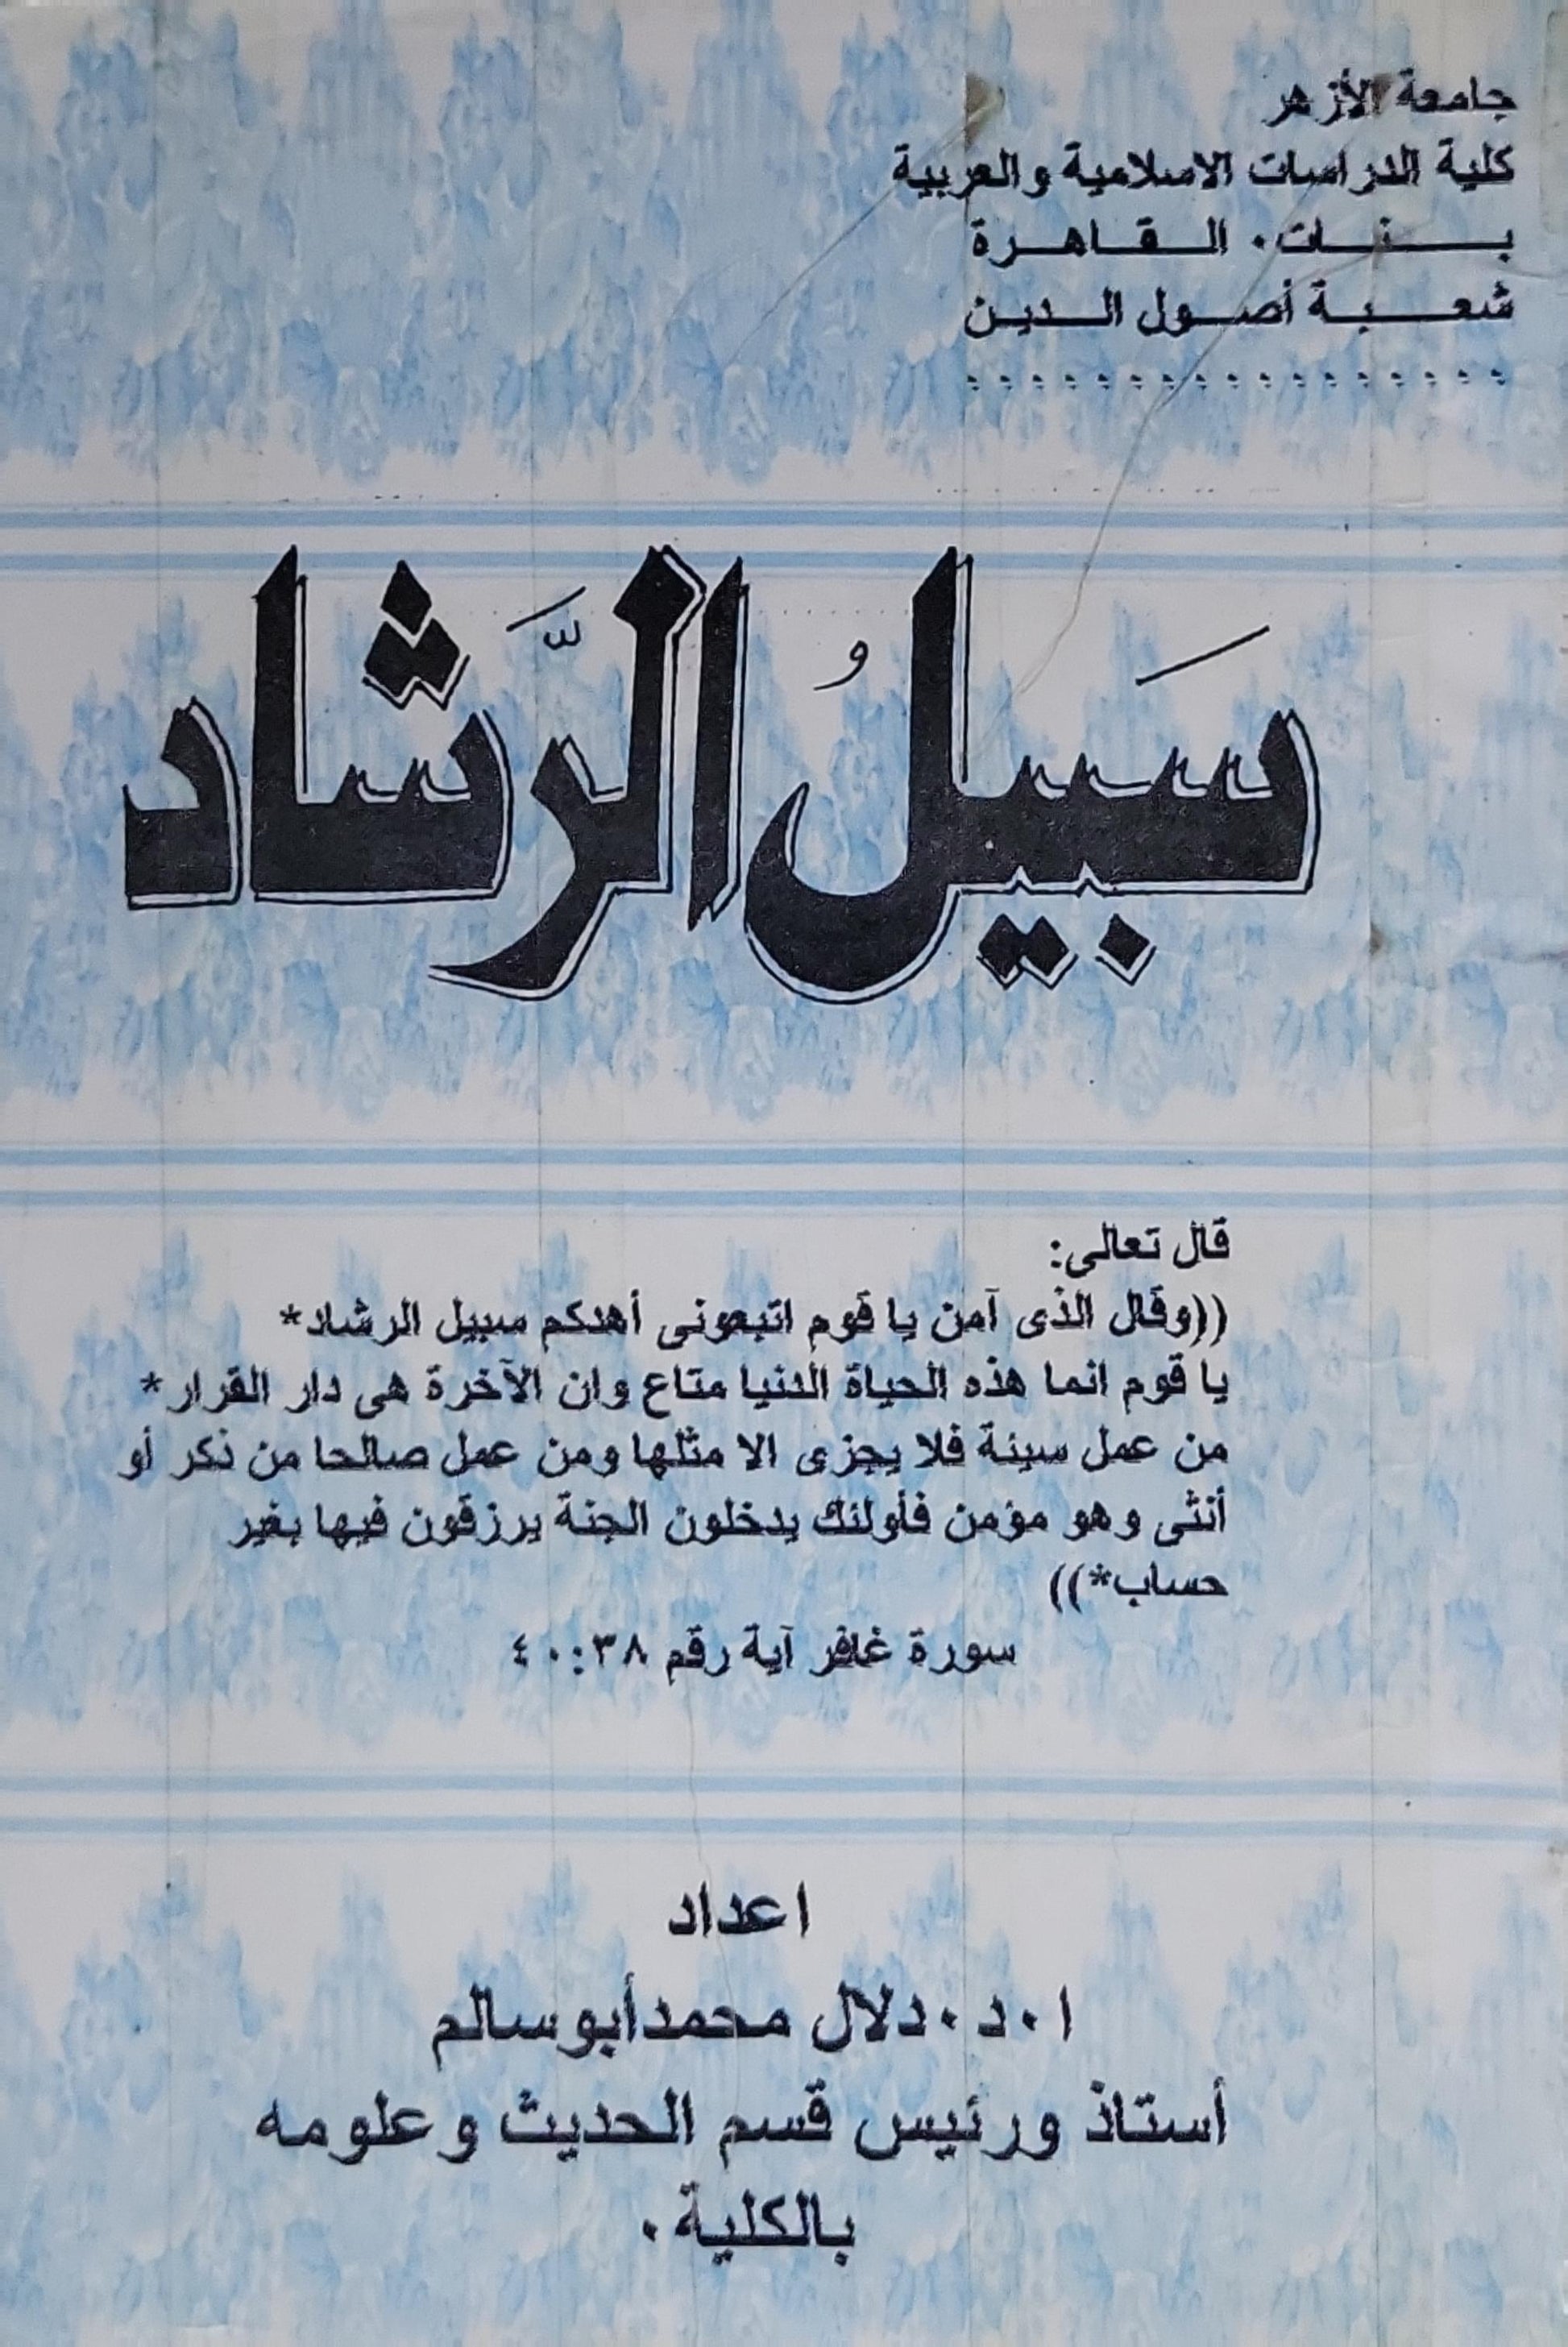 جامعة الأزهر
كلية الدراسات الاسلامية والعربية
بنات . القاهرة
شعبة أصول الدين
سَبيلُ الرَّشاد
قال تعالى:
((وقال الذى آمن يا قوم اتبعونى أهدكم سبيل الرشاد*
يا قوم انما هذه الحياة الدنيا متاع وان الآخرة هى دار القرار*
من عمل سيئة فلا يجزى الا مثلها ومن عمل صالحا من ذكر أو
أنثى وهو مؤمن فأولئك يدخلون الجنة يرزقون فيها بغير
حساب*))
سورة غافر آية رقم ٣٨:٤٠
اعداد
ا.د.دلال محمدأبوسالم
أستاذ ورئيس قسم الحديث وعلومه
بالكلية.